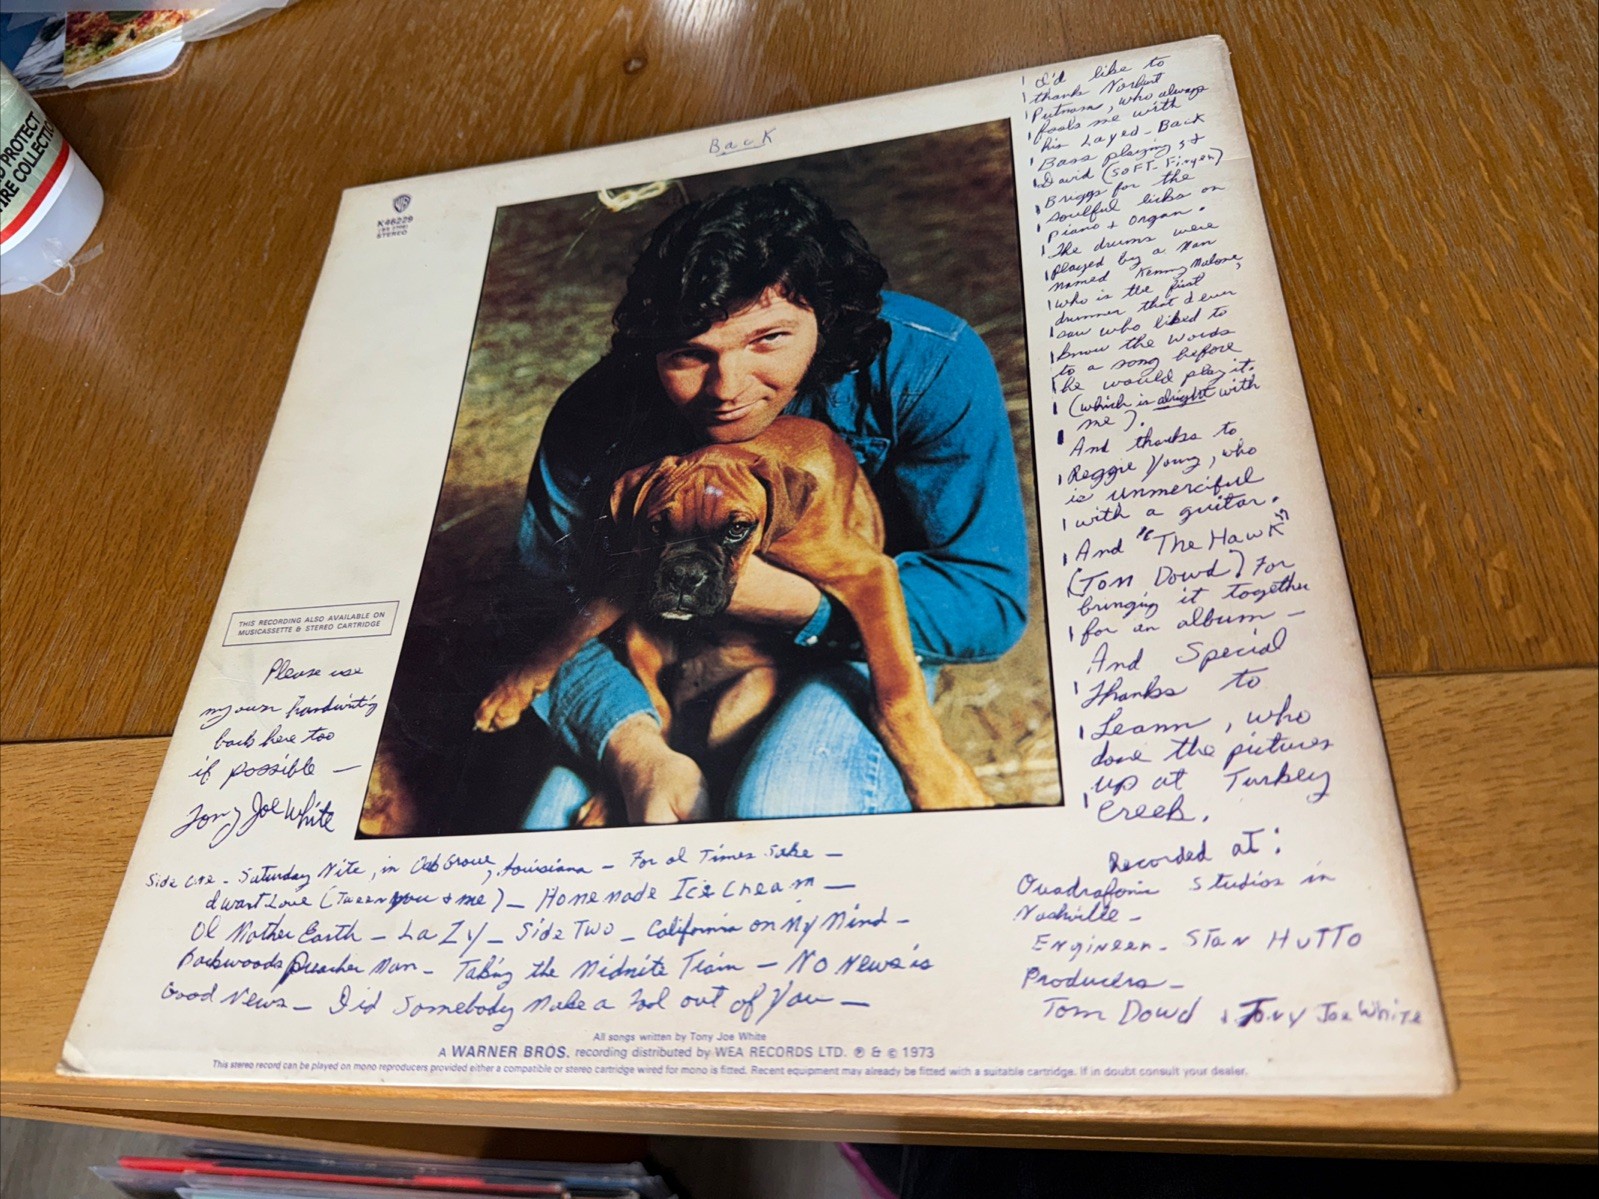 Back
K46229
STEREO
I'd like to
thank Norbert
Putnam, who always
fools me with
his Layed-Back
Bass playing, +
David (SOFT-Finger)
Briggs for the
soulful licks on
piano + organ.
The drums were
played by a Man
named Kenny Malone,
who is the first
drummer that I ever
saw who liked to
know the words
to a song before
he would play it.
(which is alright with
me).
And thanks to
Reggie Young, who
is unmerciful
with a guitar.
And "The Hawk"
(Tom Dowd) For
bringing it together
for an album —
And Special
Thanks to
Leann, who
done the pictures
up at Turkey
Creek.
THIS RECORDING ALSO AVAILABLE ON
MUSICASSETTE & STEREO CARTRIDGE
Please use
my own handwriting
back here too
if possible —
Tony Joe White
Side one - Saturday Nite, in Oak Grove, Louisiana — For ol Times Sake —
I want Love (Tween you + me) — Homemade Ice Cream —
Ol Mother Earth — Lazy — Side Two — California on My Mind —
Backwoods Preacher Man — Taking the Midnite Train — No News is
Good News — Did Somebody Make a Fool out of You —
Recorded at:
Quadrafonic Studios in
Nashville —
Engineer - Stan Hutto
Producers —
Tom Dowd + Tony Joe White
All songs written by Tony Joe White
A WARNER BROS. recording distributed by WEA RECORDS LTD. ℗ & © 1973
This stereo record can be played on mono reproducers provided either a compatible or stereo cartridge wired for mono is fitted. Recent equipment may already be fitted with a suitable cartridge. If in doubt consult your dealer.
PROTECT
COLLECTIO